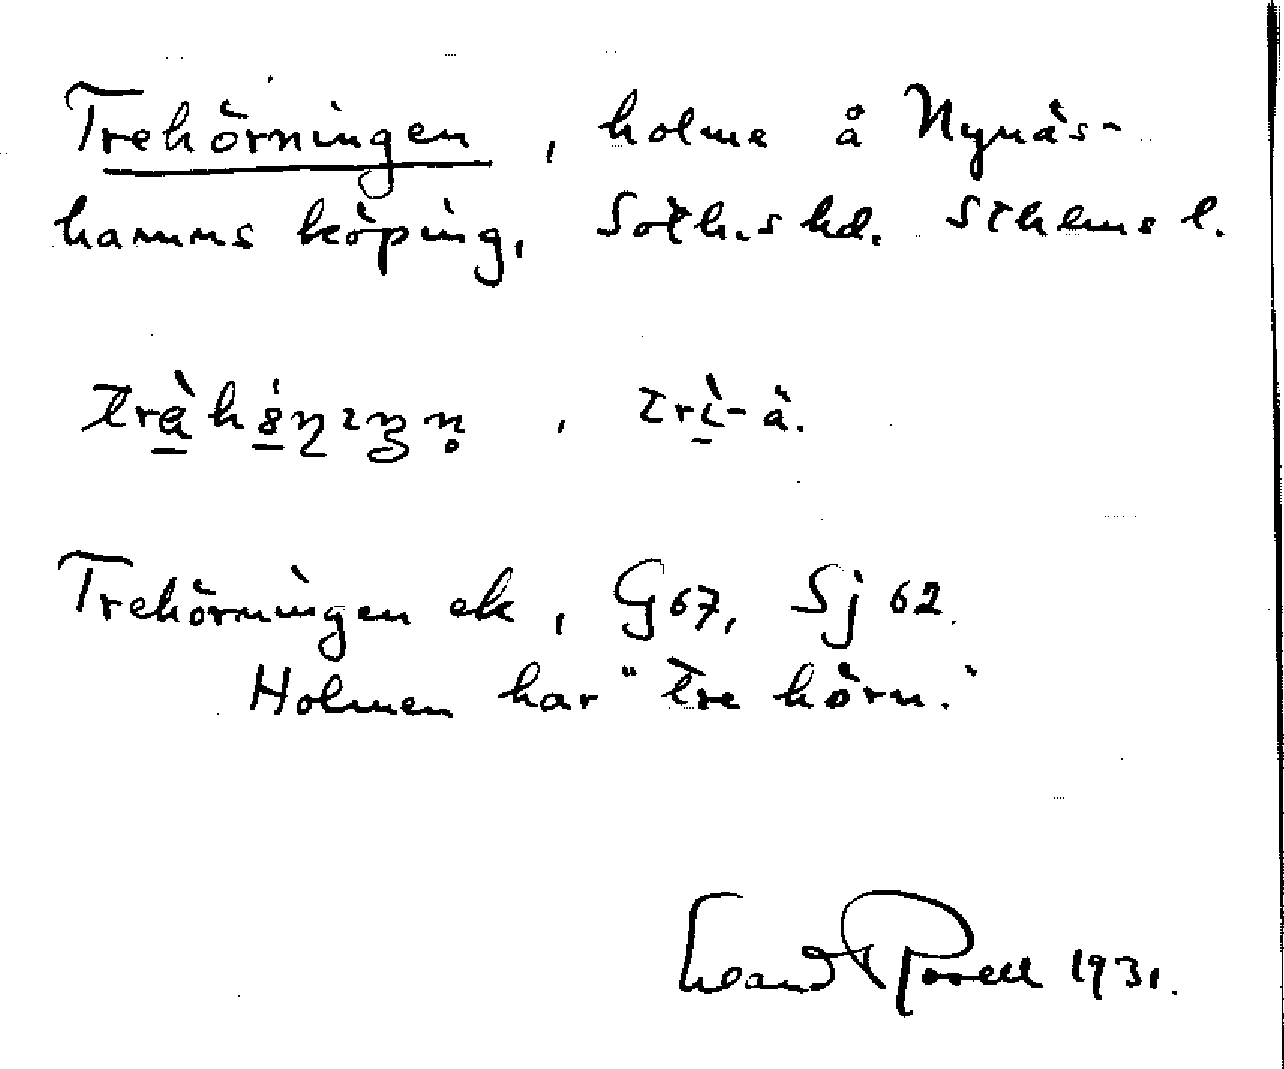 Trehörningen, holme å Nynäs-
hamns köping, Soth.s hd. Sthlms l.
, trì-ä.
Trehörningen ek, G 67, Sj 62.
Holmen har "tre hörn."
1931.